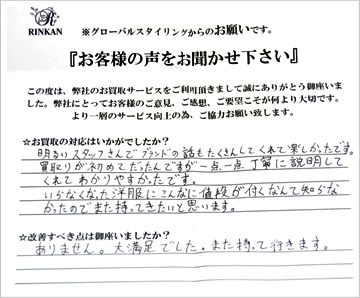 R
RINKAN
※グローバルスタイリングからのお願いです。
『お客様の声をお聞かせ下さい』
この度は、弊社のお買取サービスをご利用頂きまして誠にありがとう御座いま
した。弊社にとってお客様のご意見、ご感想、ご要望こそが何より大切です。
より一層のサービス向上の為、ご協力お願い致します。
☆お買取の対応はいかがでしたか？
明るいスタッフさんでブランドの話もたくさんしてくれて楽しかったです。
買取りが初めてだったんですが一点一点丁寧に説明して
くれてわかりやすかったです。
いらなくなった洋服にこんなに値段が付くなんて知らな
かったのでまた持ってきたいと思います。
☆改善すべき点は御座いましたか？
ありません。大満足でした。また持って行きます。